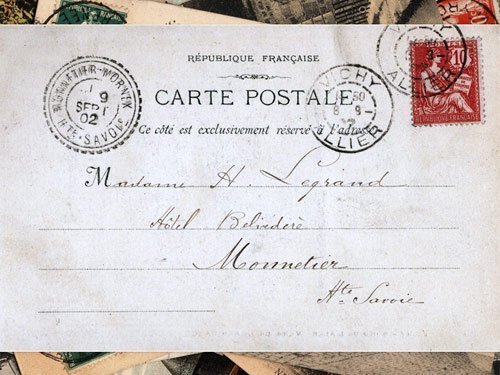 RÉPUBLIQUE FRANÇAISE
CARTE POSTALE
Ce côté est exclusivement réservé à l'adresse
MONNETIER-MORNEX
9
SEPT
02
HTE-SAVOIE
VICHY
ALLIER
ALLIER
10
RÉPUBLIQUE FRANÇAISE
Madame H. Legrand
Hôtel Belvédère
Monnetier
Hte Savoie